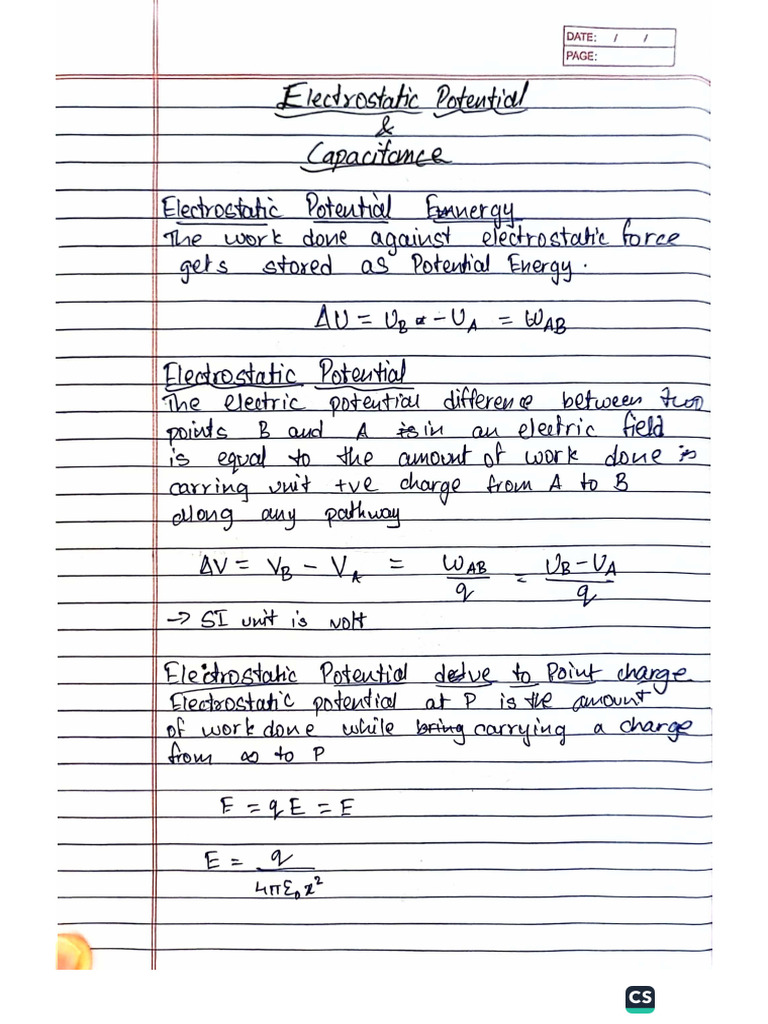 DATE: / /
PAGE:
Electrostatic Potential
&
Capacitance
Electrostatic Potential Emnergy
The work done against electrostatic force
gets stored as Potential Energy.
ΔU = U_B - U_A = W_AB
Electrostatic Potential
The electric potential difference between two
points B and A in an electric field
is equal to the amount of work done is
carring unit +ve charge from A to B
along any pathway
ΔV = V_B - V_A = W_AB/q = U_B - U_A/q
→ SI unit is volt
Electrostatic Potential due to Point charge
Electrostatic potential at P is the amount
of work done while bring carrying a charge
from ∞ to P
E = qE = E
E = q/4πε₀x²
CS